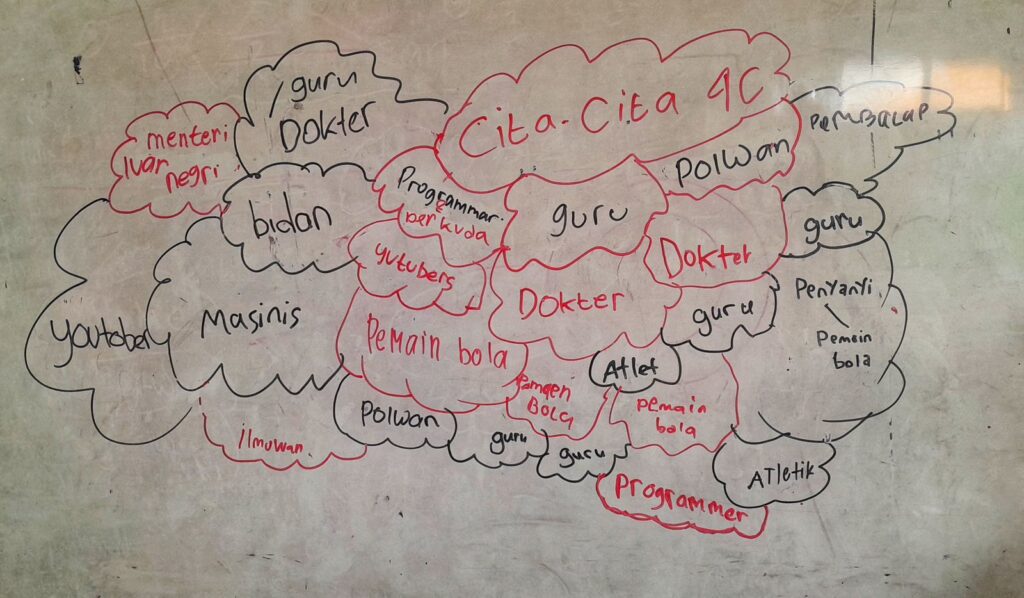 Cita-Cita 4C
/guru
DOKTER
menteri
luar
negri
bidan
Programmar
&
berkuda
guru
POLWan
PEMBALAP
guru
Dokter
yutubers
DOKTER
guru
Penyanyi
Pemain
bola
youtober
Masinis
Pemain bola
Atlet
Pemaen
BOLa
pemain
bola
Polwan
guru
guru
ilmuwan
Programmer
ATletik